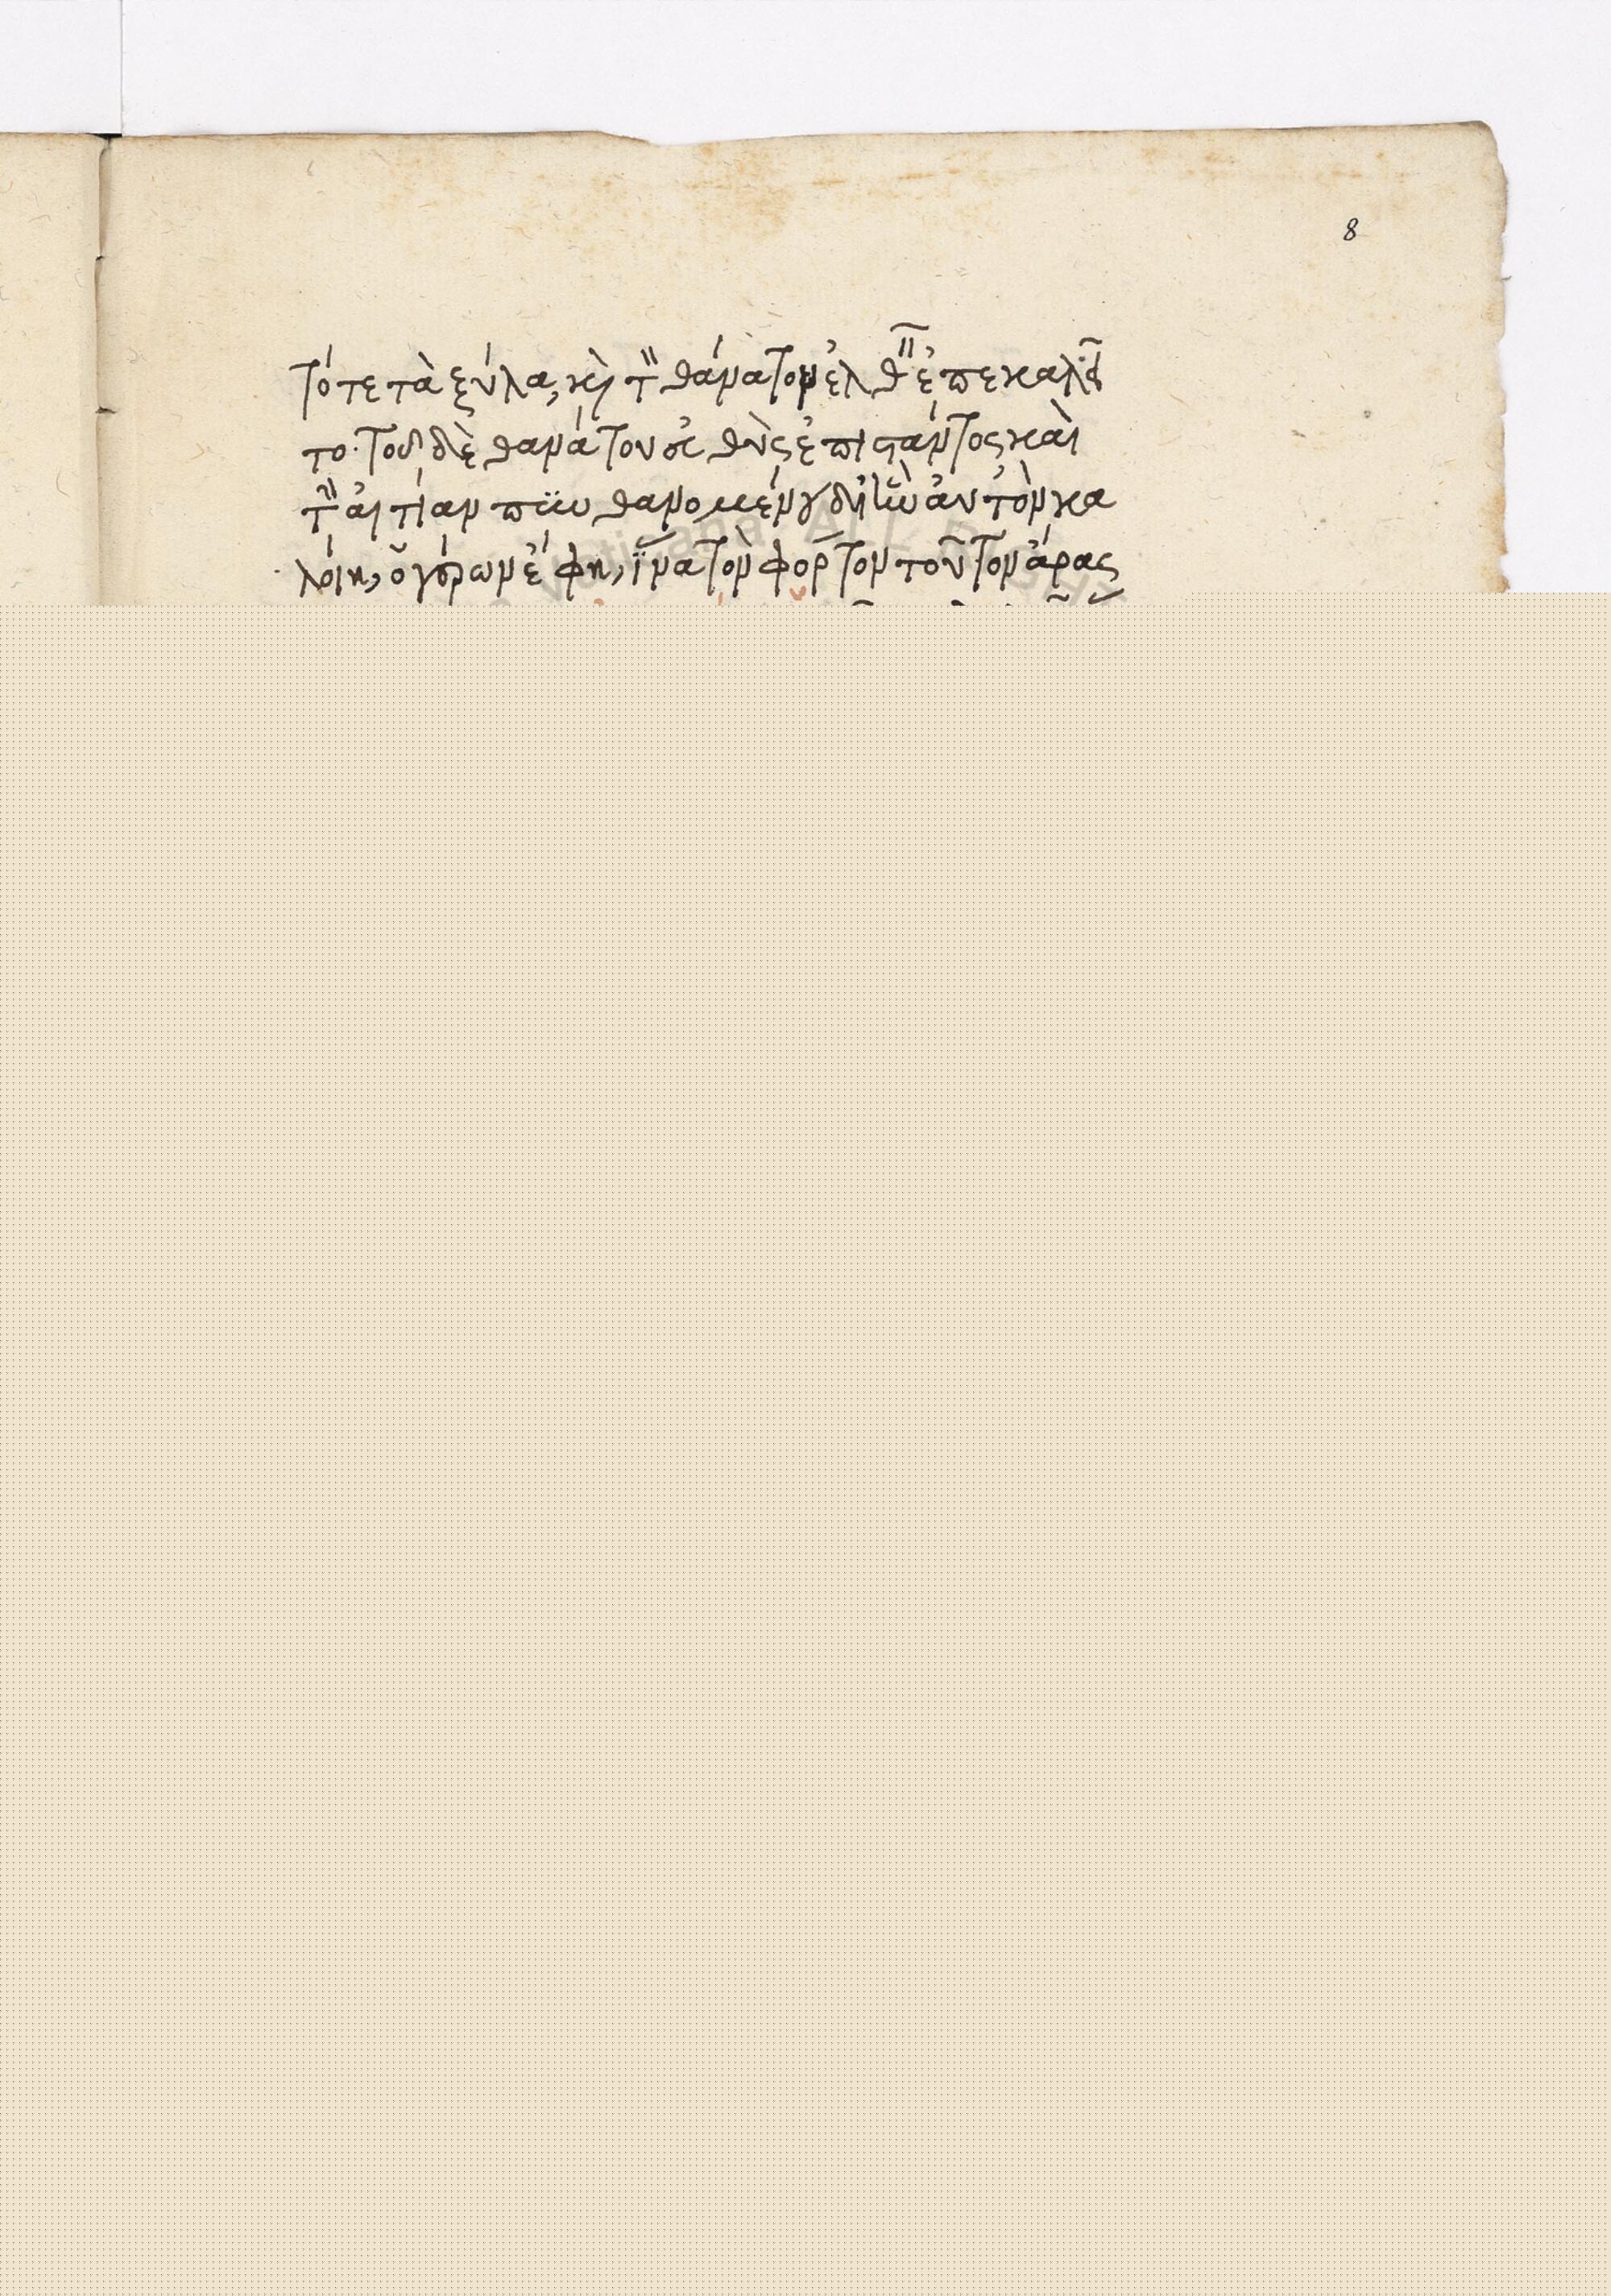 8
τό τε τὰ ξύλα, κὶ τ̀ θάνατον ἐλθεῖν ἐπεκαλεῖ
το· τοῦ δὲ θανάτου εὐθὺς ἐπιστάντος καὶ
τὴν αἰτίαν πυνθανομένου δι' ἣν αὐτὸν κα
λοίη, ὁ γέρων ἔφη, ἵνα τὸν φόρτον τοῦτον ἄρας